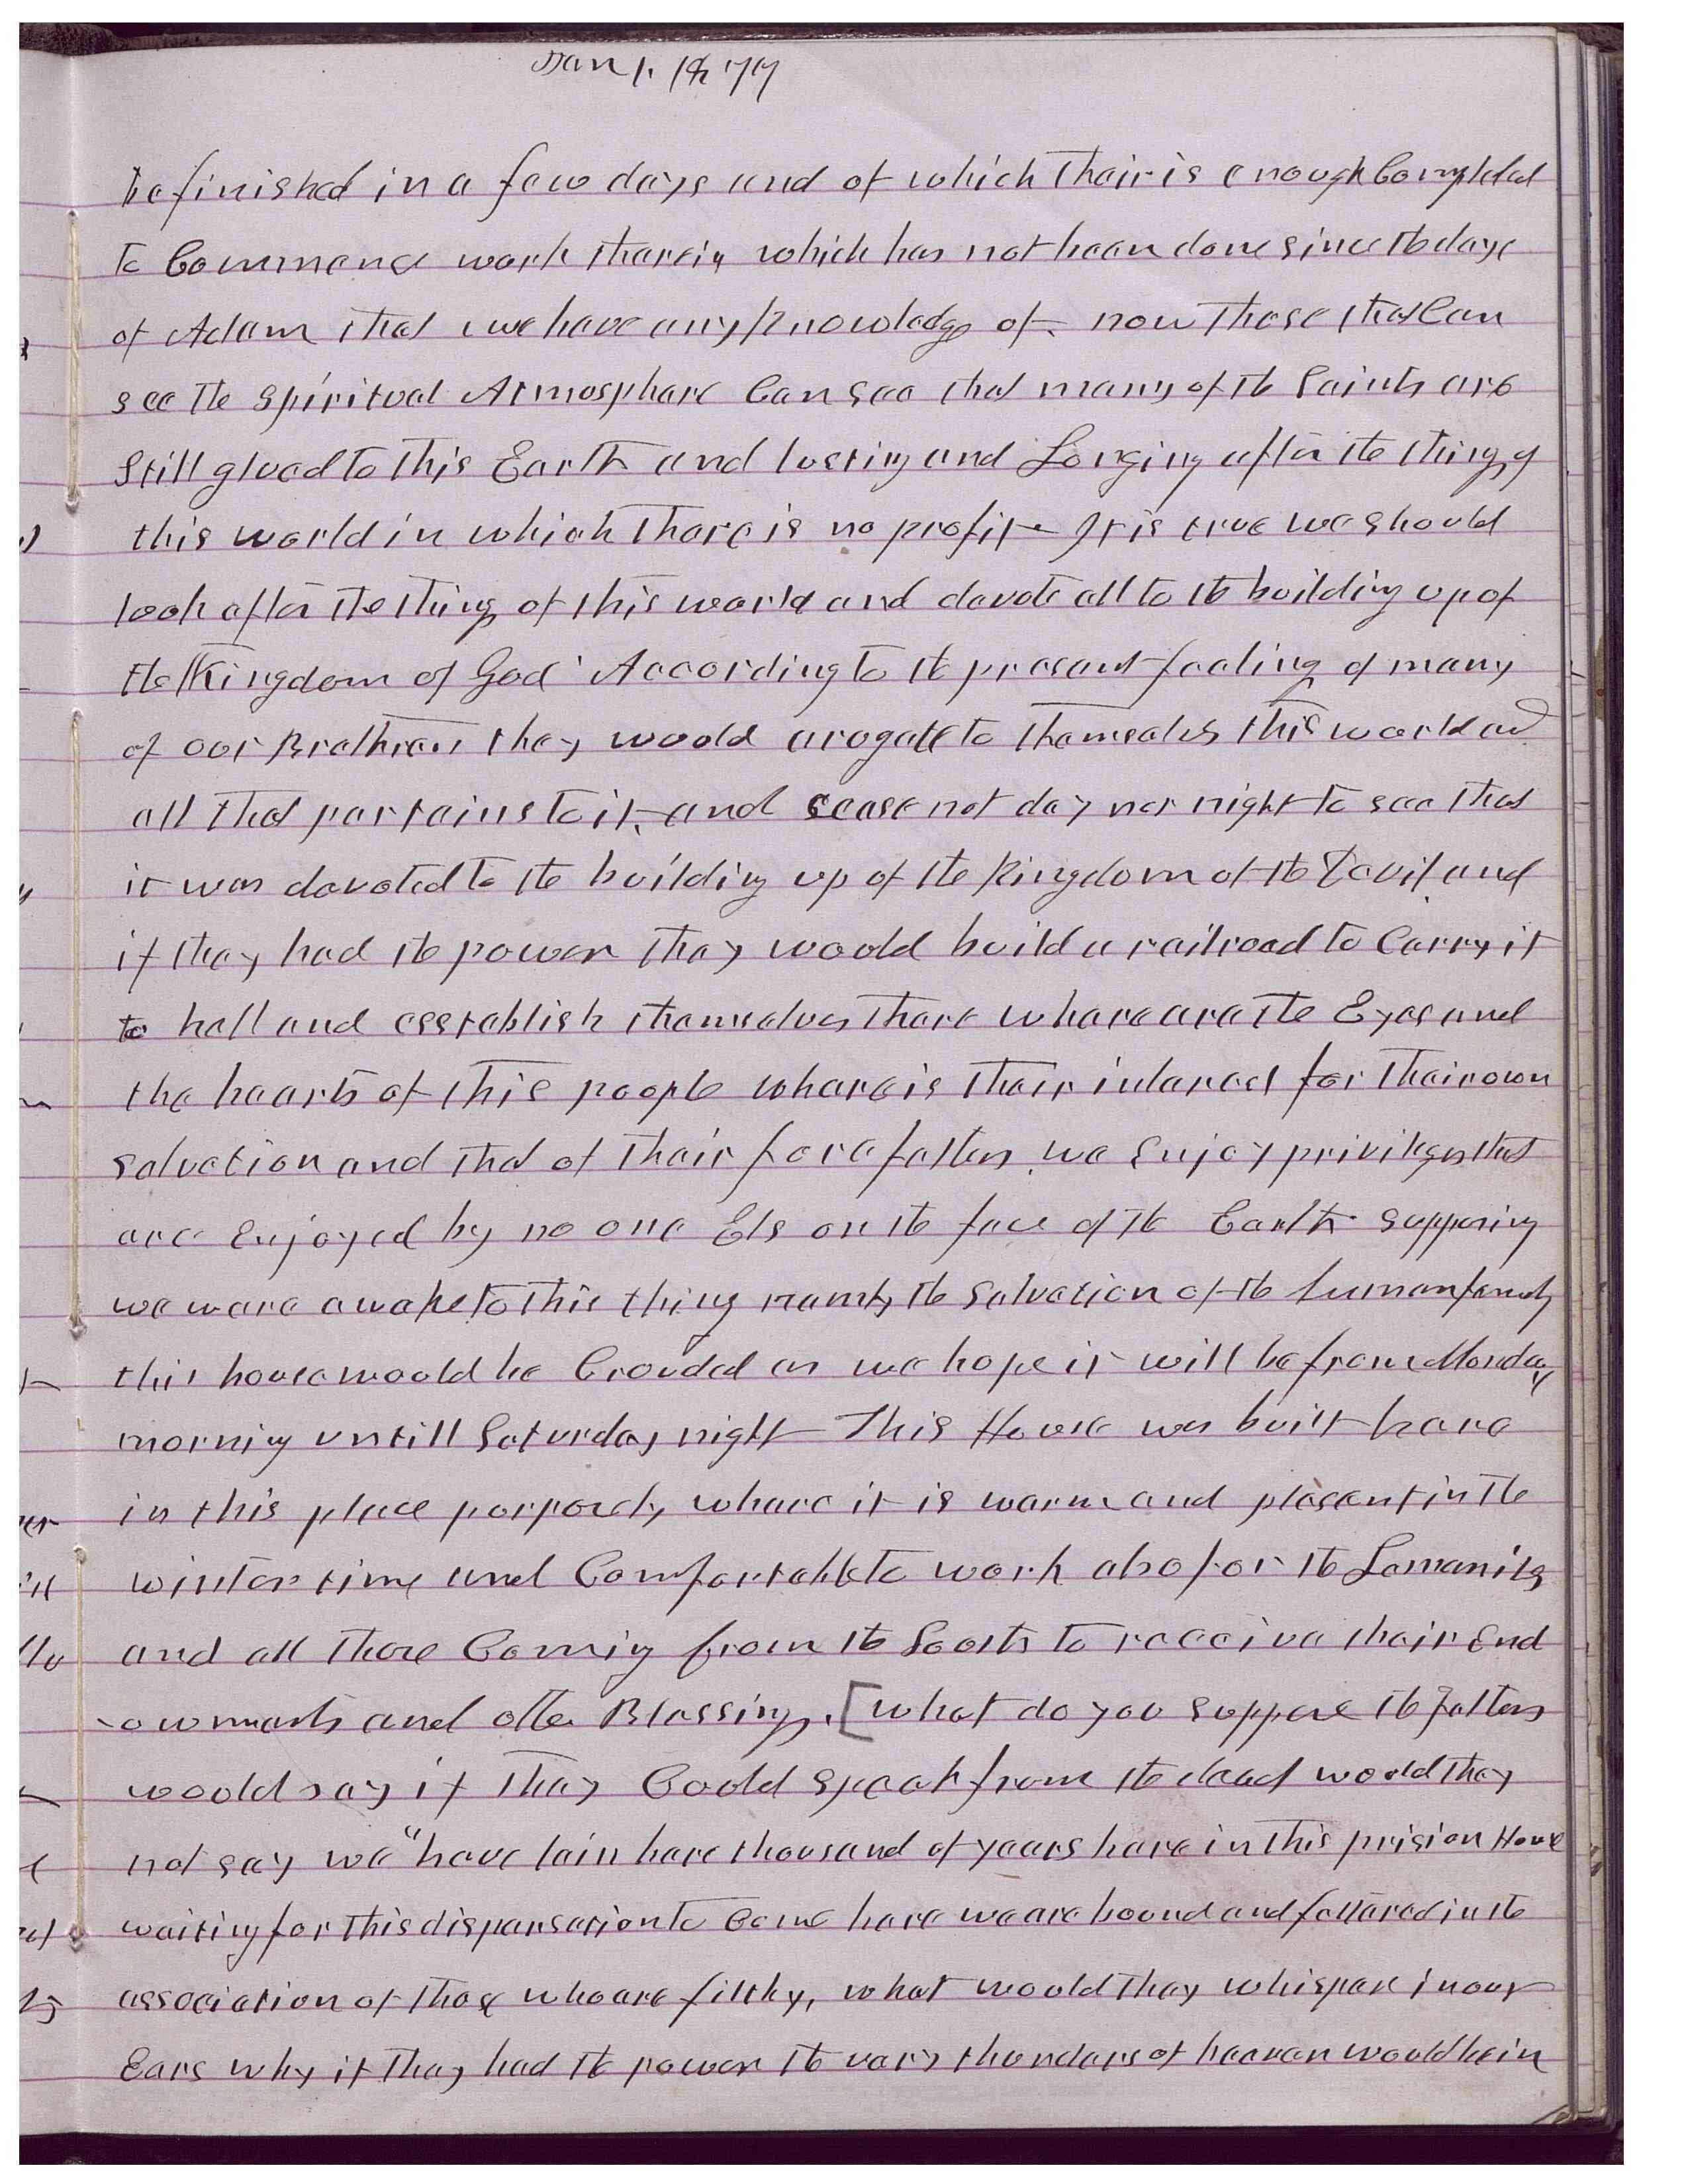 Jan 1. 1877
be finished in a few days and of which thair is enough Completed
to Commence work tharein which has not been done since the days
of Adam that we have any knowledge of. now those that Can
see the Spiritual Atmosphere Can see that many of the Saints are
Still glued to this Earth and lusting and Longing after the things of
this world in which thare is no profit It is true we should
look after the things of this world and devote all to the building up of
the Kingdom of God According to the present feeling of many
of our Brethren they would arogate to themselves this world and
all that pertains to it, and cease not day nor night to see that
it was devoted to the building up of the Kingdom of the Devil and
if they had the power they would build a railroad to Carry it
to hell and esstablish themselves thare whare are the Eyes and
the hearts of this people whare is thair interest for thair own
salvation and that of thair forefathers we Enjoy privileges that
are Enjoyed by no one Els on the face of the Earth Supposing
we ware awake to this thing namely the Salvation of the human family
this house would be Crouded as we hope it will be from Monday
morning untill Saturday night This House was built here
in this place purposely whare it is warm and plesent in the
winter time and Comfortable to work also for the Lamanites
and all those Coming from the South to receive thair End
-owments and other Blessings. [What do you suppose the fathers
would say if they Could speak from the dead would they
not say we "have lain here thousand of years here in this prision House
waiting for this dispensation to Come here we are bound and fettered in the
association of those who are filthy, what would they whisper in our
Ears why if they had the power the very thunders of heaven would be in